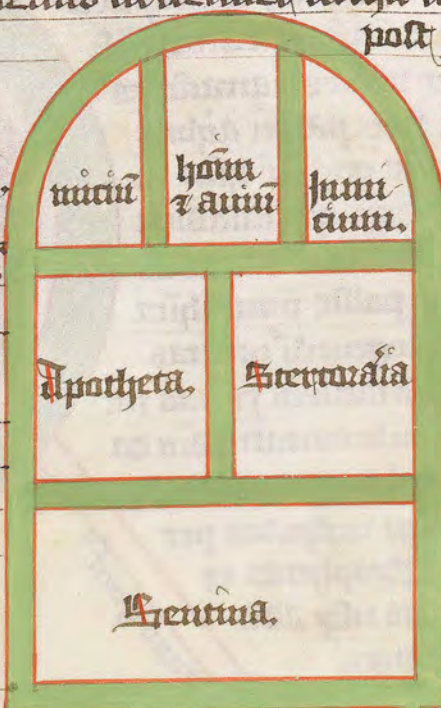 post
miciū
hoīm
⁊ auiū
Inmi
cium.
Apotheta,
Stercoraria
Sentina.